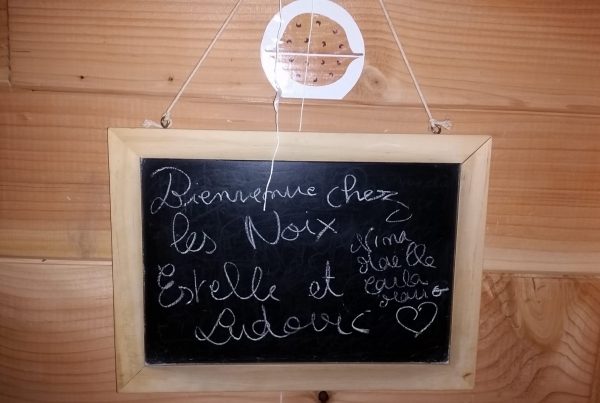 Bienvenue chez
les Noix
Estelle et
Ludovic
Nina
Carla